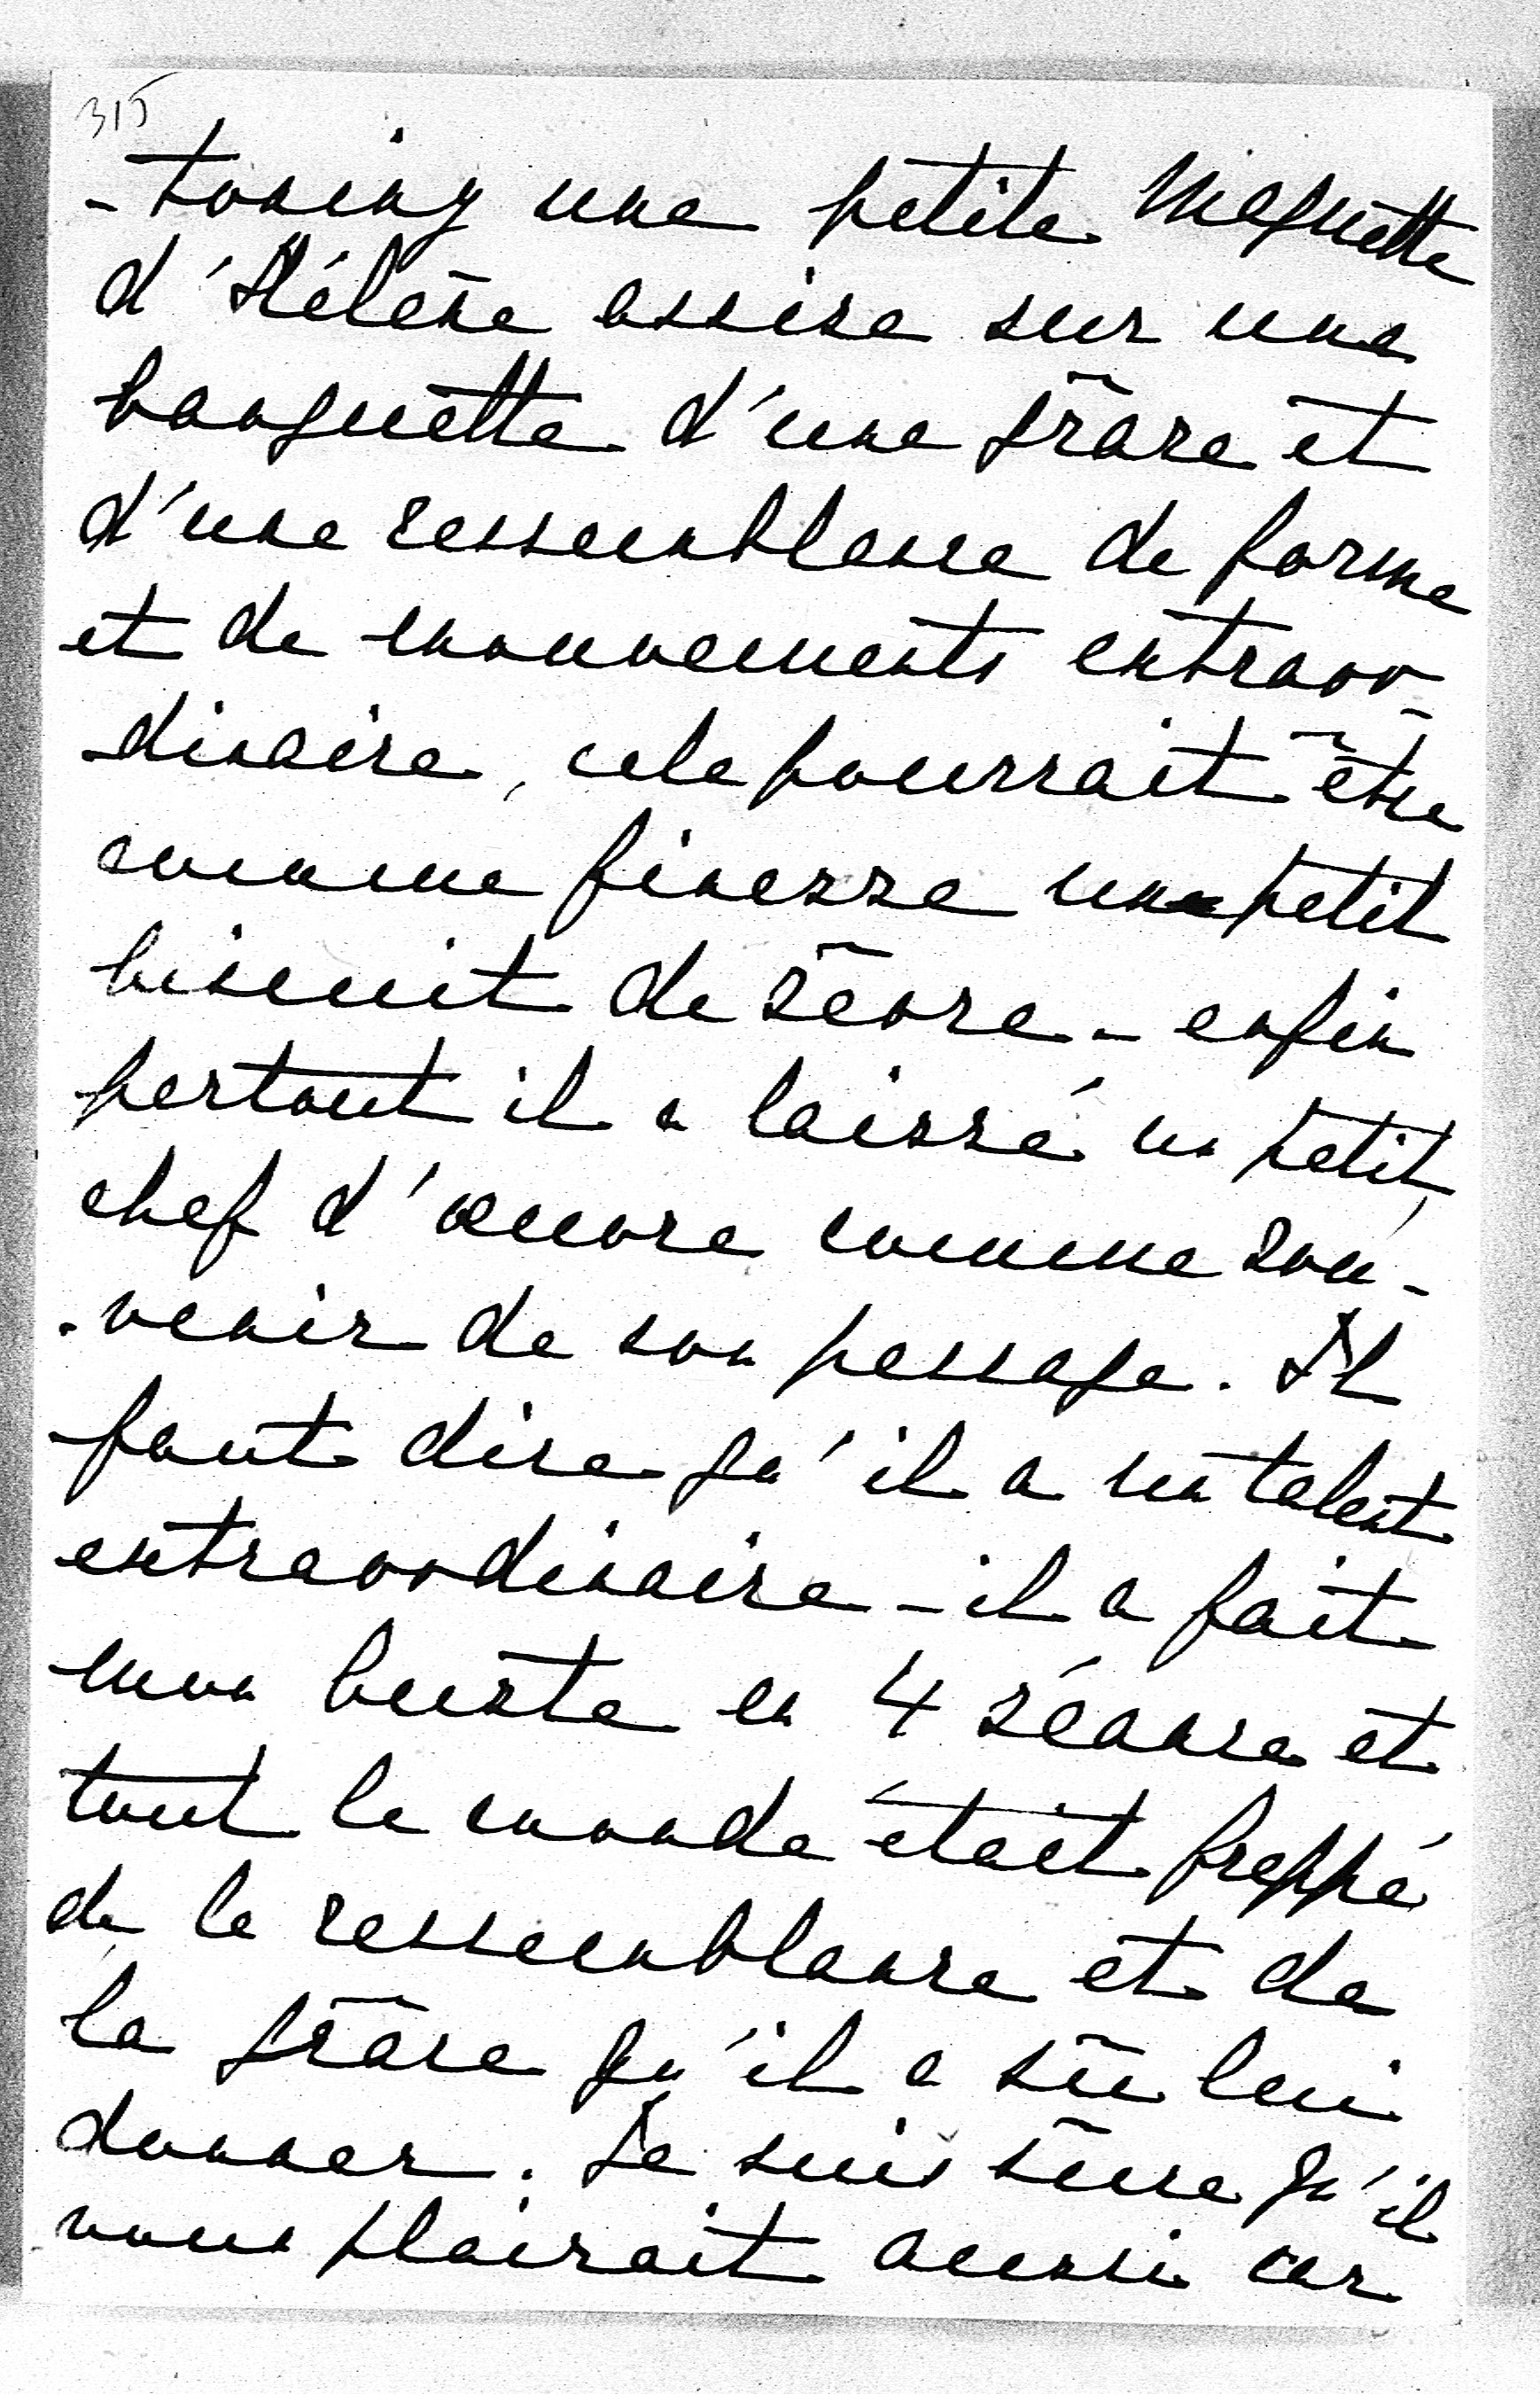 315
-toning une petite maquette
d'Hélène assise sur une
banquette d'une grâce et
d'une ressemblance de forme
et de mouvements extraor-
-dinaire, cela pourrait être
comme finesse un petit
biscuit de Sèvre - enfin
partout il a laissé un petit
chef d'œuvre comme sou-
-venir de son passage. Il
faut dire qu'il a un talent
extraordinaire - il a fait
mon buste en 4 séance et
tout le monde était frappé
de la ressemblance et de
la grâce qu'il a sû lui
donner. Je suis sûre qu'il
vous plairait aussi car